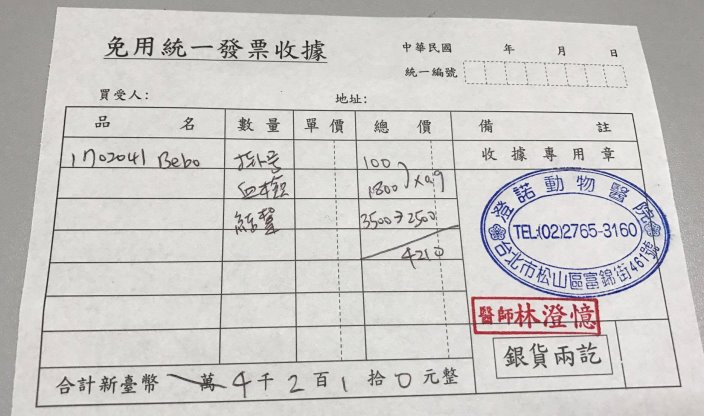 免用統一發票收據
中華民國 年 月 日
統一編號
買受人: 地址:
品名 數量 單價 總價 備註
1702041 Bebo 掛号 100
血檢 1800 ) x0.9
結紮 3500→2500
4210
收據專用章
澄諾動物醫院
TEL:(02)2765-3160
台北市松山區富錦街461號
醫師林澄憶
銀貨兩訖
合計新臺幣 萬4千2百1拾0元整